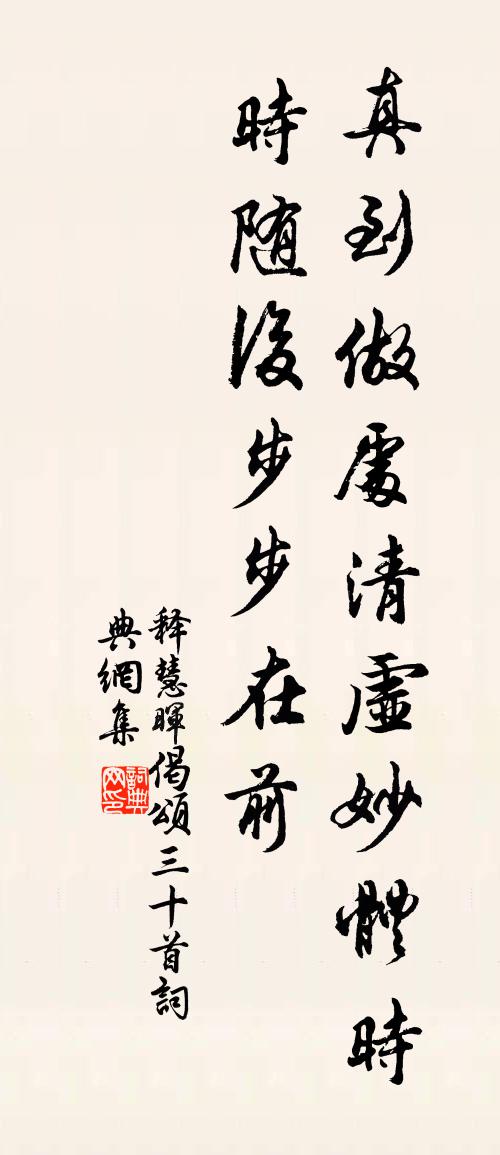 真到做處清虛妙體時
時随後步步在前
释慧暉偈頌三十首詞
典網集
詞典
网印